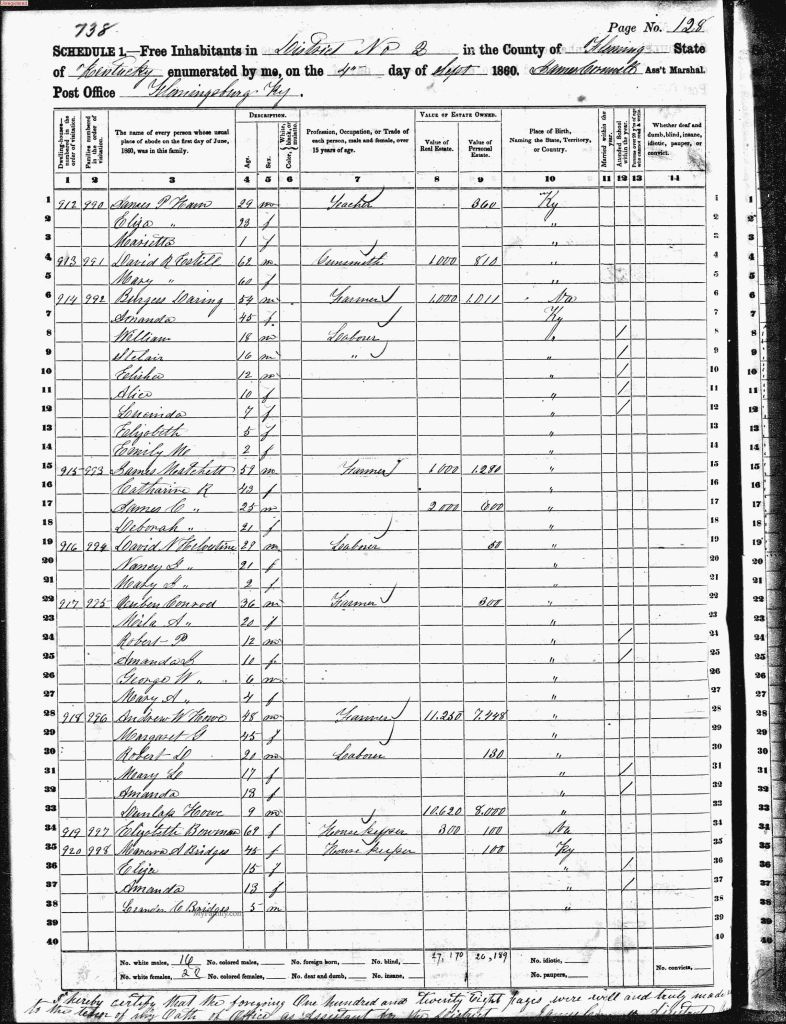 738
Page No. 128
SCHEDULE 1.—Free Inhabitants in District No 2 in the County of Fleming State
of Kentucky enumerated by me, on the 4th day of Sept 1860. Ass't Marshal.
Post Office Flemingsburg Ky.
Dwelling-houses— numbered in the order of visitation.
Families numbered in the order of visitation.
The name of every person whose usual place of abode on the first day of June, 1860, was in this family.
DESCRIPTION.
Age.
Sex.
Color, White, black, or mulatto.
Profession, Occupation, or Trade of each person, male and female, over 15 years of age.
VALUE OF ESTATE OWNED.
Value of Real Estate.
Value of Personal Estate.
Place of Birth, Naming the State, Territory, or Country.
Married within the year.
Attended School within the year.
Persons over 20 y'rs of age who cannot read & write.
Whether deaf and dumb, blind, insane, idiotic, pauper, or convict.
1 2 3 4 5 6 7 8 9 10 11 12 13 14
1 912 990 James P Ham 29 m Teacher 360 Ky 1
2 Eliza " 23 f " 2
3 Marietta 1 f " 3
4 913 991 David R Estill 62 m Gunsmith 1000 810 " 4
5 Mary " 60 f " 5
6 914 992 Burgess Daring 54 m Farmer 1,000 1,011 Va 6
7 Amanda 45 f Ky 7
8 William 18 m Laborer " / 8
9 16 m " " / 9
10 Elisha 12 m " / 10
11 Alice 10 f " / 11
12 Lucinda 7 f " / 12
13 Elizabeth 5 f " 13
14 Emily 2 f " 14
15 915 993 James Matchett 59 m Farmer 1000 1.280 " 15
16 Catharine R 43 f " 16
17 James C " 25 m 2000 600 " 17
18 Deborah " 21 f " 18
19 916 994 David N Helvestine 29 m Laborer 50 " 19
20 Nancy " 21 f " 20
21 Mary " 2 f " 21
22 917 995 Conrod 36 m Farmer 300 " 22
23 " 20 f " 23
24 Robert P 12 m " / 24
25 Amanda 10 f " / 25
26 George W " 6 m " 26
27 Mary A " 4 f " 27
28 918 996 Andrew W Howe 48 m Farmer 11.250 7.448 " 28
29 Margaret G 45 f " 29
30 Robert D 20 m Laborer 130 " 30
31 Mary 17 f " / 31
32 Amanda 13 f " / 32
33 Dunlap Howe 9 m 10.620 8.000 " 33
34 919 997 Elizabeth Bowman 69 f House keeper 300 100 Va 34
35 920 998 Bridges 45 f House keeper 100 Ky 35
36 Eliza 15 f " / 36
37 Amanda 13 f " / 37
38 Leander C Bridges 5 m " 38
MyFamily.com
39 39
40 40
No. white males, 16 No. colored males, No. foreign born, No. blind, 27,170 20,189 No. idiotic, No. convicts,
No. white females, 22 No. colored females, No. deaf and dumb, No. insane, No. paupers,
I hereby certify that the foregoing One hundred and twenty eight pages were well and truly made
to the tenor of my Oath of Office as assistant for the District